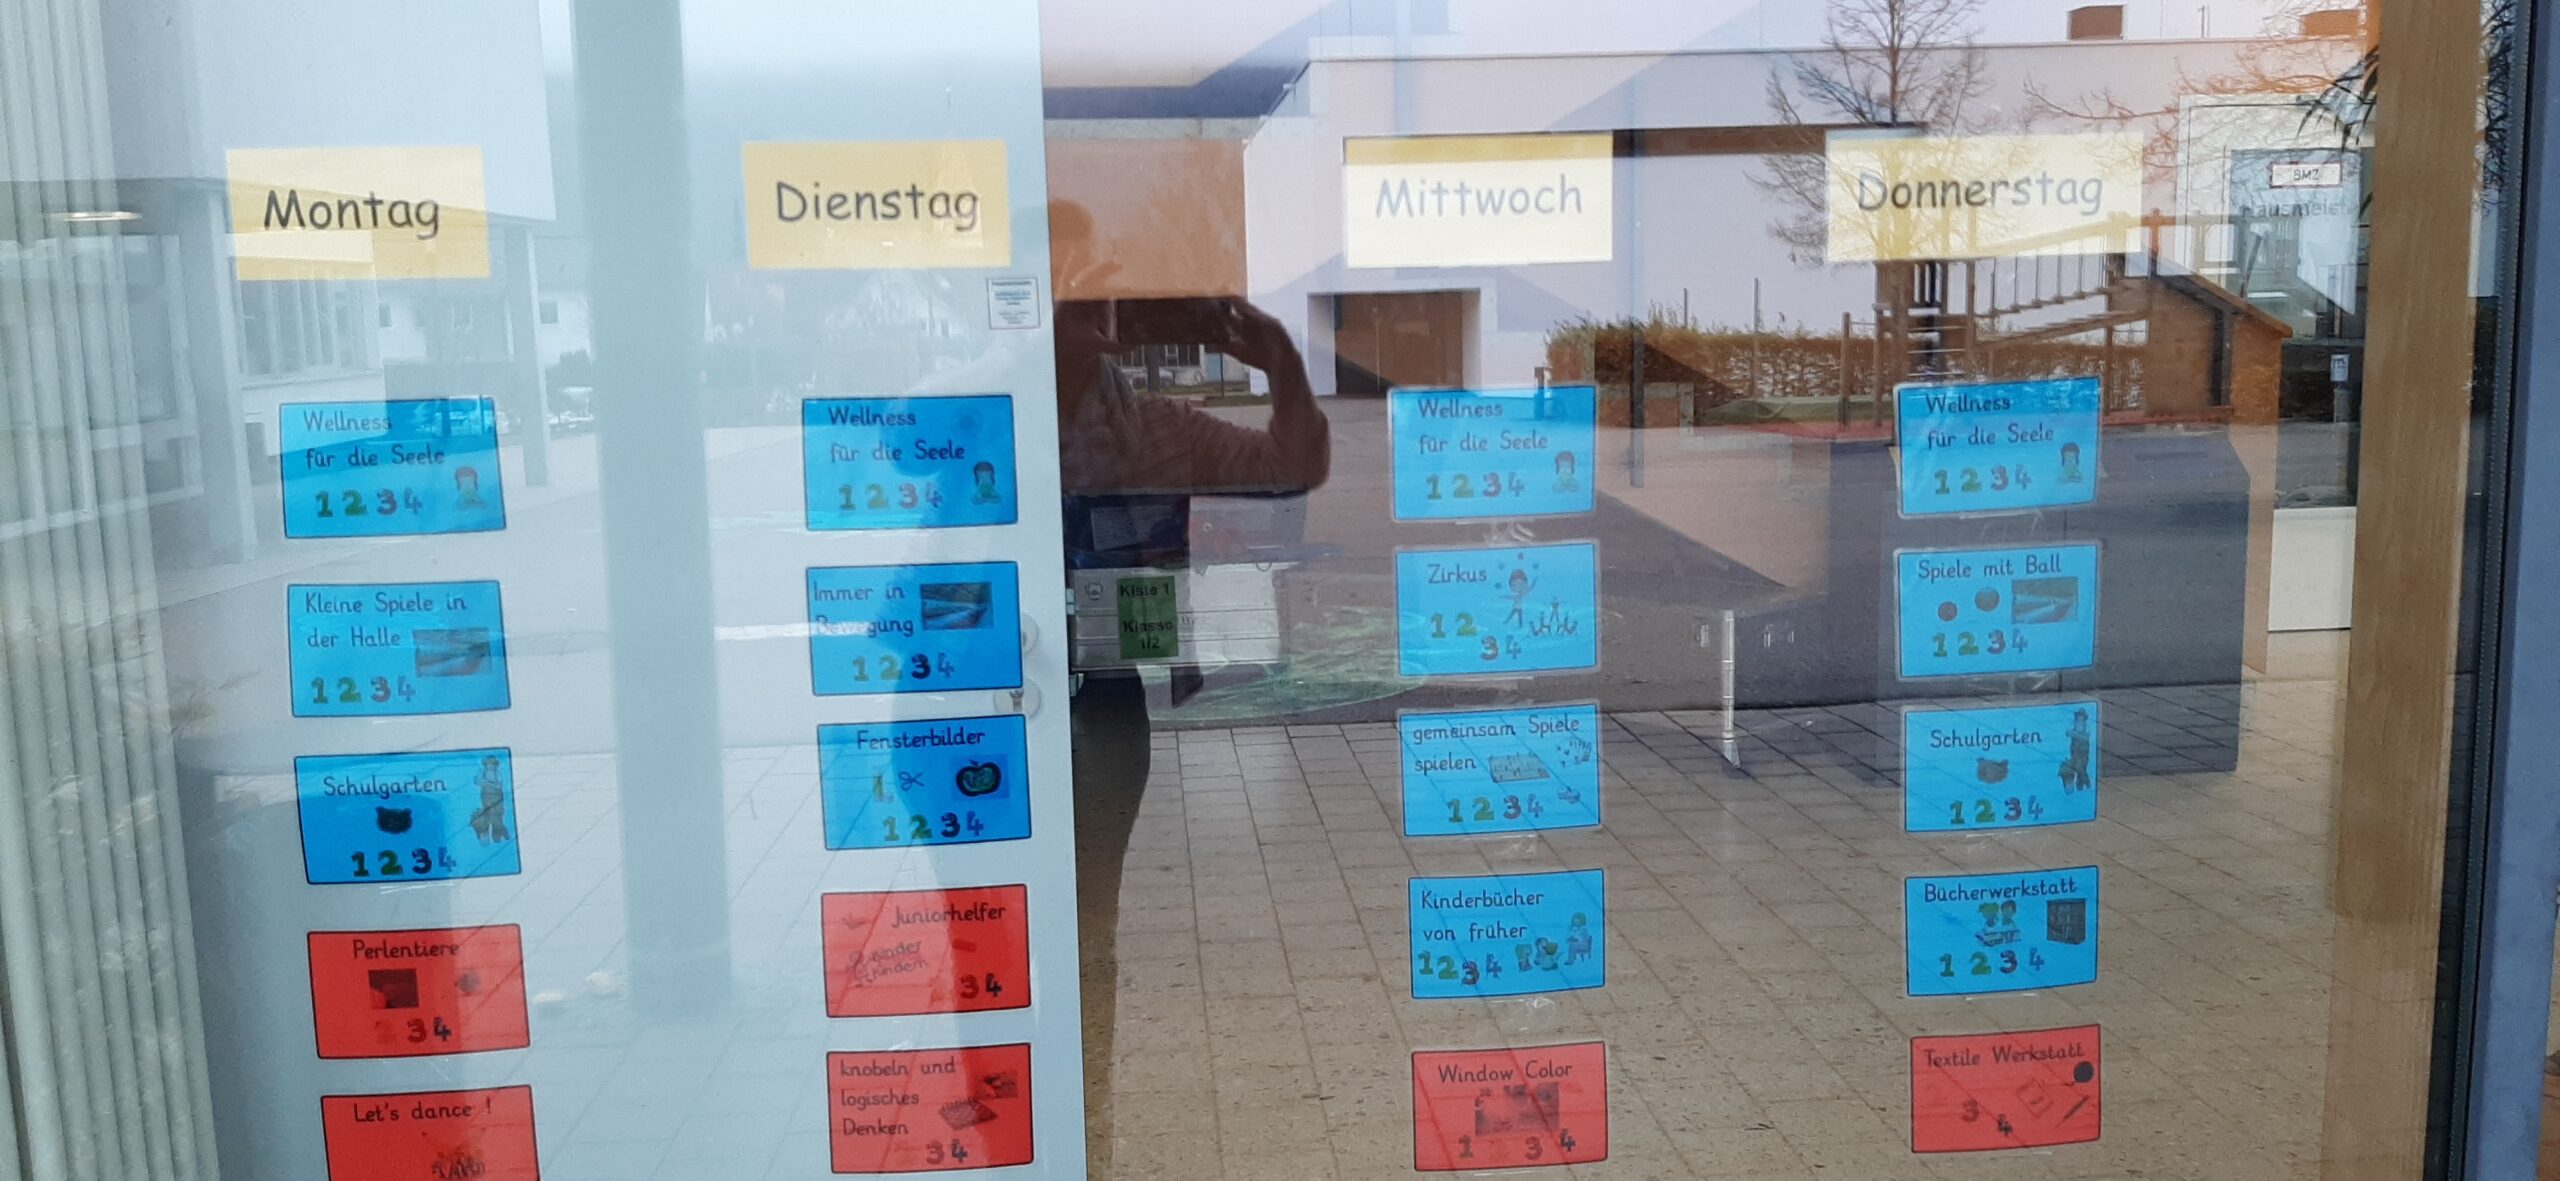 Montag
Wellness
für die Seele
1 2 3 4
Kleine Spiele in
der Halle
1 2 3 4
Schulgarten
1 2 3 4
Perlentiere
3 4
Let's dance !
Dienstag
Wellness
für die Seele
1 2 3 4
Immer in
Bewegung
1 2 3 4
Fensterbilder
1 2 3 4
Juniorhelfer
Kinder
Kindern
3 4
knobeln und
logisches
Denken
3 4
Kiste 1
Klasse
1/2
Mittwoch
Wellness
für die Seele
1 2 3 4
Zirkus
1 2
3 4
gemeinsam Spiele
spielen
1 2 3 4
Kinderbücher
von früher
1 2 3 4
Window Color
1 3 4
Donnerstag
Wellness
für die Seele
1 2 3 4
Spiele mit Ball
1 2 3 4
Schulgarten
1 2 3 4
Bücherwerkstatt
1 2 3 4
Textile Werkstatt
3 4
BMZ